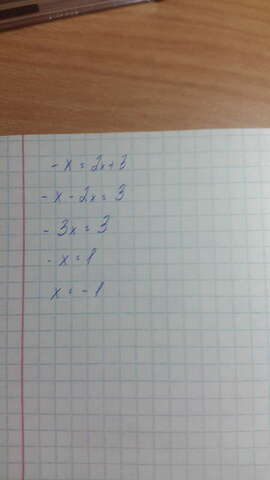 -x = 2x+3
-x - 2x = 3
-3x = 3
-x = 1
x = -1